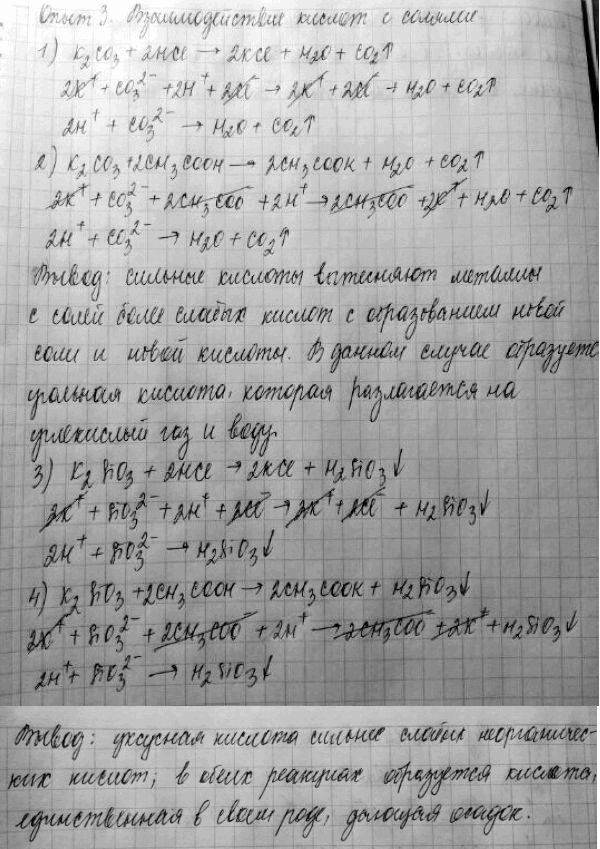 Опыт 3. Взаимодействие кислот с солями
1) K₂CO₃ + 2HCl → 2KCl + H₂O + CO₂↑
2K⁺ + CO₃²⁻ + 2H⁺ + 2Cl⁻ → 2K⁺ + 2Cl⁻ + H₂O + CO₂↑
2H⁺ + CO₃²⁻ → H₂O + CO₂↑
2) K₂CO₃ + 2CH₃COOH → 2CH₃COOK + H₂O + CO₂↑
2K⁺ + CO₃²⁻ + 2CH₃COO⁻ + 2H⁺ → 2CH₃COO⁻ + 2K⁺ + H₂O + CO₂↑
2H⁺ + CO₃²⁻ → H₂O + CO₂↑
Вывод: сильные кислоты вытесняют металлы
с солей более слабых кислот с образованием новой
соли и новой кислоты. В данном случае образуетс
угольная кислота, которая разлагается на
углекислый газ и воду.
3) K₂SiO₃ + 2HCl → 2KCl + H₂SiO₃↓
2K⁺ + SiO₃²⁻ + 2H⁺ + 2Cl⁻ → 2K⁺ + 2Cl⁻ + H₂SiO₃↓
2H⁺ + SiO₃²⁻ → H₂SiO₃↓
4) K₂SiO₃ + 2CH₃COOH → 2CH₃COOK + H₂SiO₃↓
2K⁺ + SiO₃²⁻ + 2CH₃COO⁻ + 2H⁺ → 2CH₃COO⁻ + 2K⁺ + H₂SiO₃↓
2H⁺ + SiO₃²⁻ → H₂SiO₃↓
Вывод: уксусная кислота сильнее слабых неорганичес-
ких кислот; в обеих реакциях образуется кислота,
единственная в своем роде, дающая осадок.